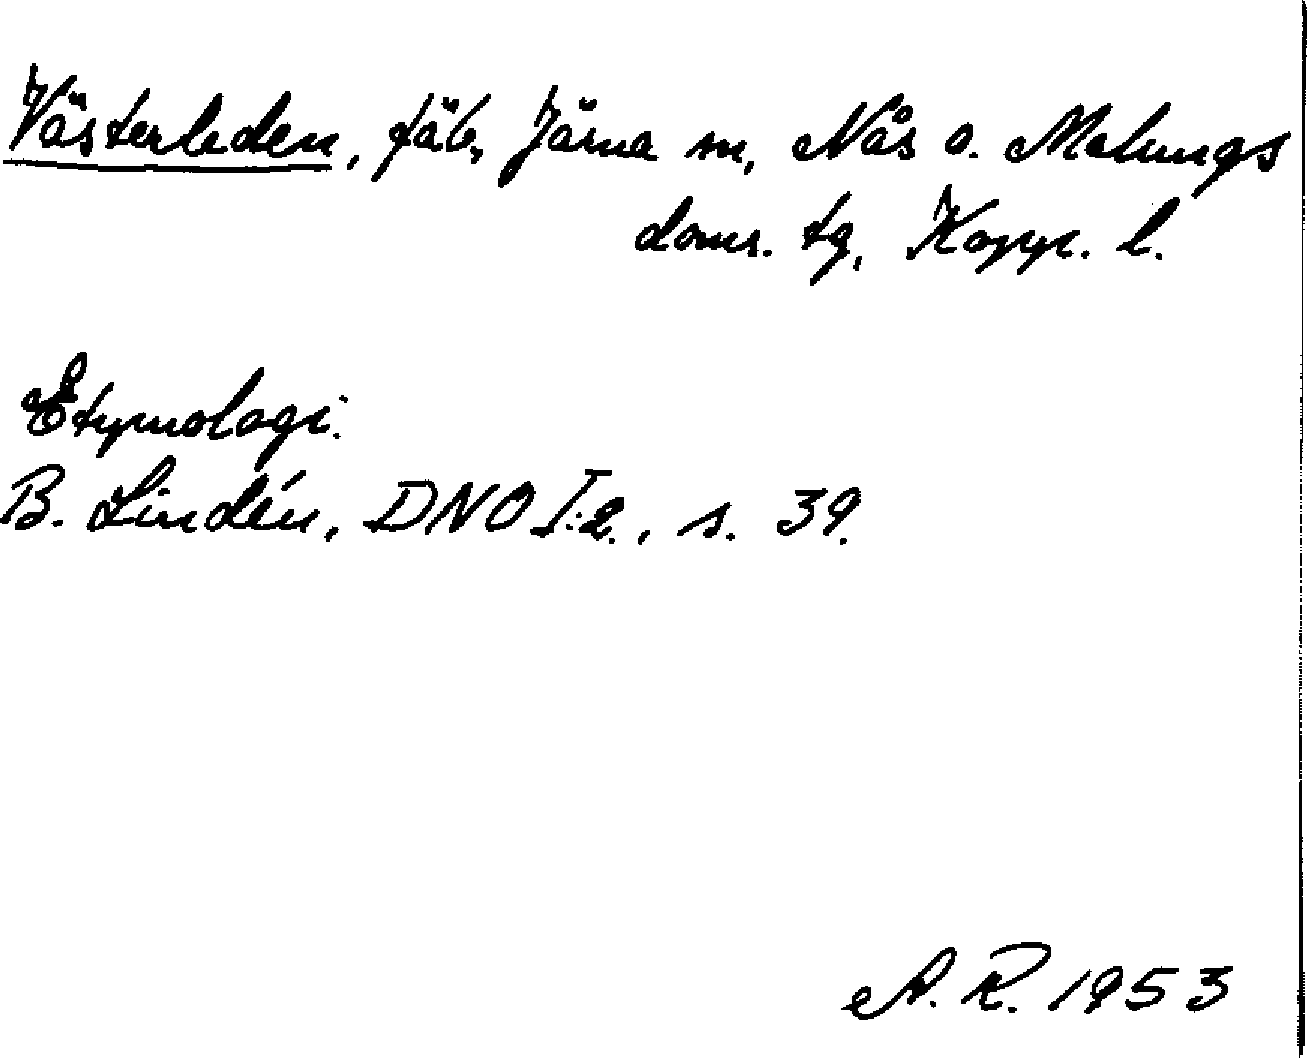 Västerleden, fäb, Järna sn, Nås o. Malungs
doms. tg, Kopp. l.
Etymologi:
B. Lindén, DNO I:2., s. 39.
A. R. 1953